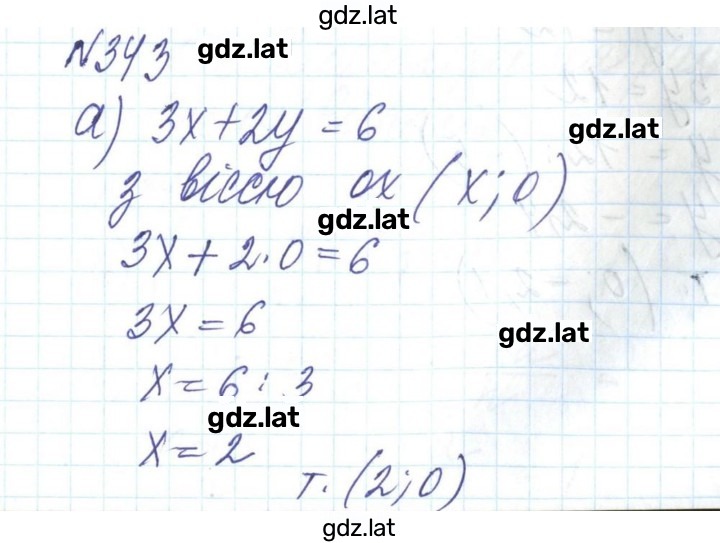 gdz.lat
№343 gdz.lat
а) 3x+2y=6 gdz.lat
з віссю ox (x;0)
gdz.lat
3x+2·0=6
3x=6 gdz.lat
x=6:3
gdz.lat
x=2
т. (2;0)
gdz.lat